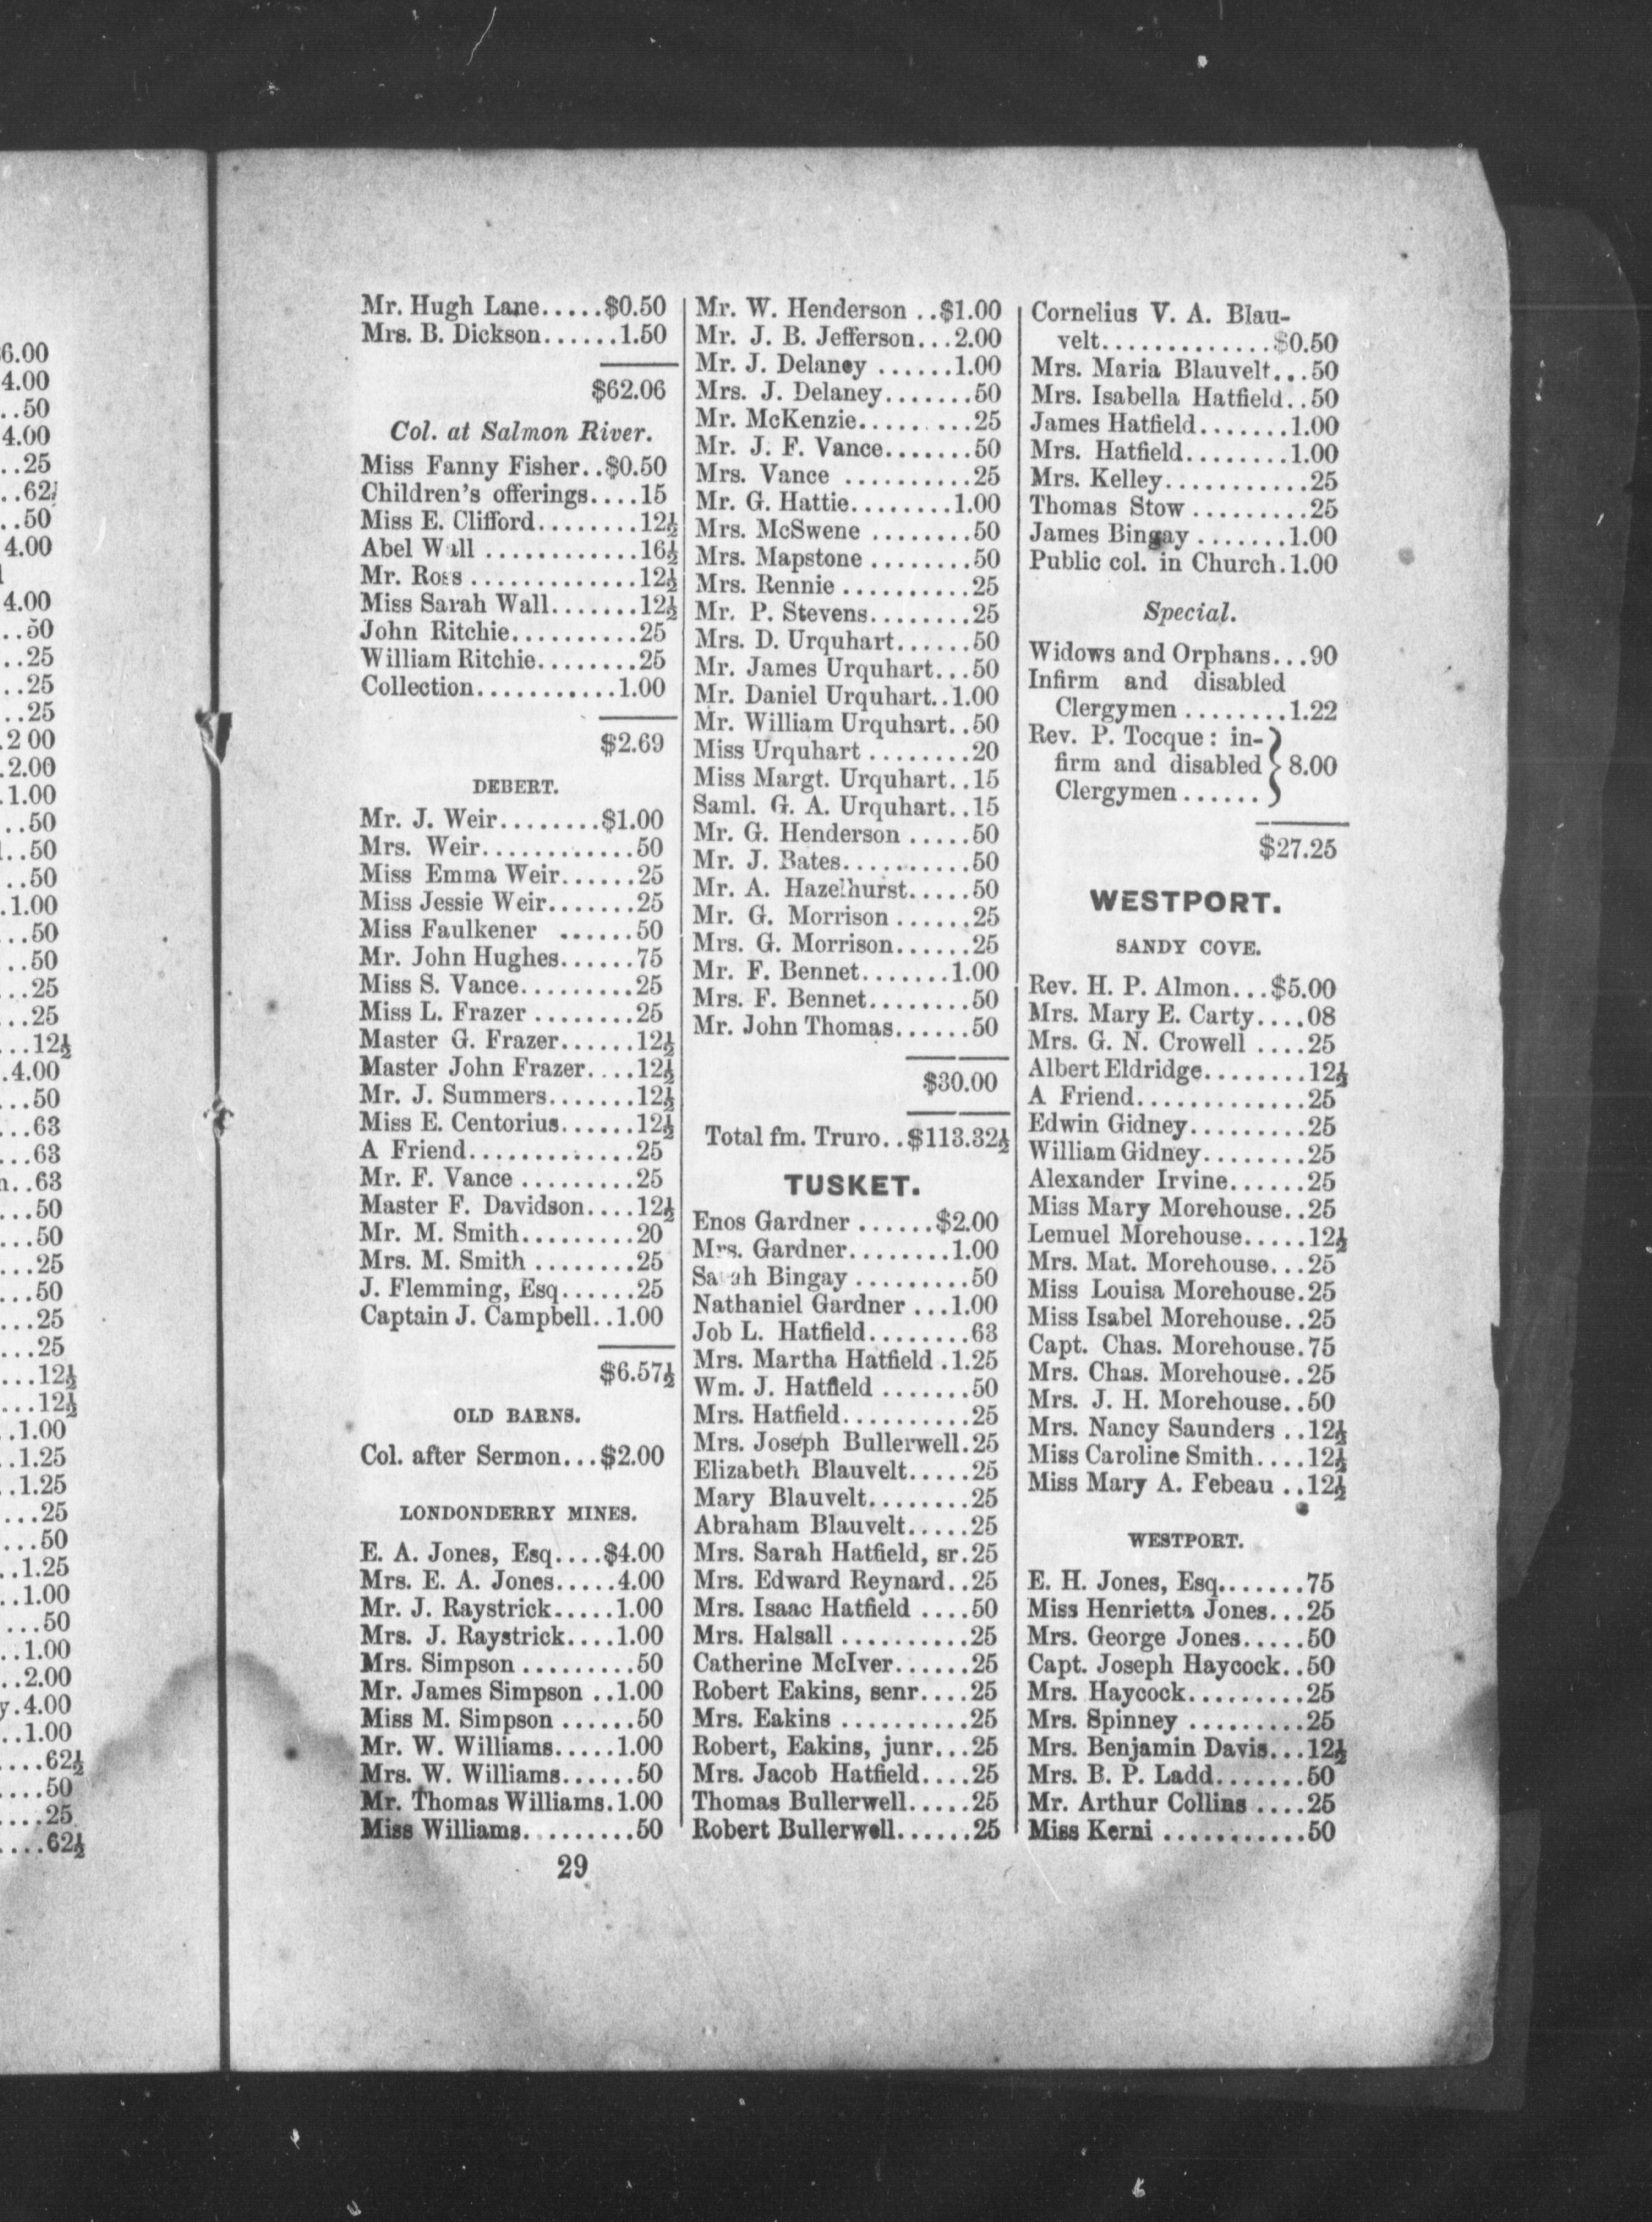 36.00
4.00
..50
4.00
..25
..62½
..50
4.00
4.00
..50
..25
..25
..25
.2 00
.2.00
.1.00
...50
...50
..50
.1.00
...50
...50
...25
...25
...12½
.4.00
...50
...63
...63
n..63
...50
...50
...25
...50
...25
...25
...12½
...12½
..1.00
..1.25
..1.25
....25
....50
..1.25
..1.00
....50
..1.00
..2.00
y.4.00
..1.00
....62½
....50
....25
....62½
Mr. Hugh Lane.....$0.50
Mrs. B. Dickson......1.50
$62.06
Col. at Salmon River.
Miss Fanny Fisher..$0.50
Children's offerings....15
Miss E. Clifford........12½
Abel Wall ............16½
Mr. Ross .............12½
Miss Sarah Wall.......12½
John Ritchie..........25
William Ritchie........25
Collection...........1.00
$2.69
DEBERT.
Mr. J. Weir........$1.00
Mrs. Weir............50
Miss Emma Weir......25
Miss Jessie Weir.......25
Miss Faulkener ......50
Mr. John Hughes......75
Miss S. Vance.........25
Miss L. Frazer ........25
Master G. Frazer......12½
Master John Frazer....12½
Mr. J. Summers.......12½
Miss E. Centorius......12½
A Friend.............25
Mr. F. Vance .........25
Master F. Davidson....12½
Mr. M. Smith.........20
Mrs. M. Smith ........25
J. Flemming, Esq......25
Captain J. Campbell..1.00
$6.57½
OLD BARNS.
Col. after Sermon...$2.00
LONDONDERRY MINES.
E. A. Jones, Esq....$4.00
Mrs. E. A. Jones.....4.00
Mr. J. Raystrick.....1.00
Mrs. J. Raystrick....1.00
Mrs. Simpson .........50
Mr. James Simpson ..1.00
Miss M. Simpson ......50
Mr. W. Williams.....1.00
Mrs. W. Williams......50
Mr. Thomas Williams.1.00
Miss Williams.........50
Mr. W. Henderson ..$1.00
Mr. J. B. Jefferson...2.00
Mr. J. Delaney ......1.00
Mrs. J. Delaney.......50
Mr. McKenzie.........25
Mr. J. F. Vance.......50
Mrs. Vance ..........25
Mr. G. Hattie........1.00
Mrs. McSwene ........50
Mrs. Mapstone ........50
Mrs. Rennie ..........25
Mr. P. Stevens........25
Mrs. D. Urquhart......50
Mr. James Urquhart...50
Mr. Daniel Urquhart..1.00
Mr. William Urquhart..50
Miss Urquhart ........20
Miss Margt. Urquhart..15
Saml. G. A. Urquhart..15
Mr. G. Henderson .....50
Mr. J. Bates..........50
Mr. A. Hazelhurst.....50
Mr. G. Morrison ......25
Mrs. G. Morrison......25
Mr. F. Bennet.......1.00
Mrs. F. Bennet........50
Mr. John Thomas......50
$30.00
Total fm. Truro..$113.32½
TUSKET.
Enos Gardner ......$2.00
Mrs. Gardner........1.00
Sarah Bingay .........50
Nathaniel Gardner ...1.00
Job L. Hatfield........63
Mrs. Martha Hatfield .1.25
Wm. J. Hatfield .......50
Mrs. Hatfield..........25
Mrs. Joseph Bullerwell.25
Elizabeth Blauvelt.....25
Mary Blauvelt........25
Abraham Blauvelt.....25
Mrs. Sarah Hatfield, sr.25
Mrs. Edward Reynard..25
Mrs. Isaac Hatfield ....50
Mrs. Halsall ..........25
Catherine McIver......25
Robert Eakins, senr....25
Mrs. Eakins ..........25
Robert, Eakins, junr...25
Mrs. Jacob Hatfield....25
Thomas Bullerwell.....25
Robert Bullerwell......25
Cornelius V. A. Blau-
velt..............$0.50
Mrs. Maria Blauvelt...50
Mrs. Isabella Hatfield..50
James Hatfield.......1.00
Mrs. Hatfield........1.00
Mrs. Kelley...........25
Thomas Stow .........25
James Bingay .......1.00
Public col. in Church.1.00
Special.
Widows and Orphans...90
Infirm and disabled
Clergymen ........1.22
Rev. P. Tocque: in-
firm and disabled } 8.00
Clergymen ......
$27.25
WESTPORT.
SANDY COVE.
Rev. H. P. Almon...$5.00
Mrs. Mary E. Carty....08
Mrs. G. N. Crowell ....25
Albert Eldridge........12½
A Friend.............25
Edwin Gidney.........25
William Gidney........25
Alexander Irvine......25
Miss Mary Morehouse..25
Lemuel Morehouse.....12½
Mrs. Mat. Morehouse...25
Miss Louisa Morehouse.25
Miss Isabel Morehouse..25
Capt. Chas. Morehouse.75
Mrs. Chas. Morehouse..25
Mrs. J. H. Morehouse..50
Mrs. Nancy Saunders ..12½
Miss Caroline Smith....12½
Miss Mary A. Febeau ..12½
WESTPORT.
E. H. Jones, Esq.......75
Miss Henrietta Jones...25
Mrs. George Jones.....50
Capt. Joseph Haycock..50
Mrs. Haycock.........25
Mrs. Spinney .........25
Mrs. Benjamin Davis...12½
Mrs. B. P. Ladd.......50
Mr. Arthur Collins ....25
Miss Kerni ...........50
29